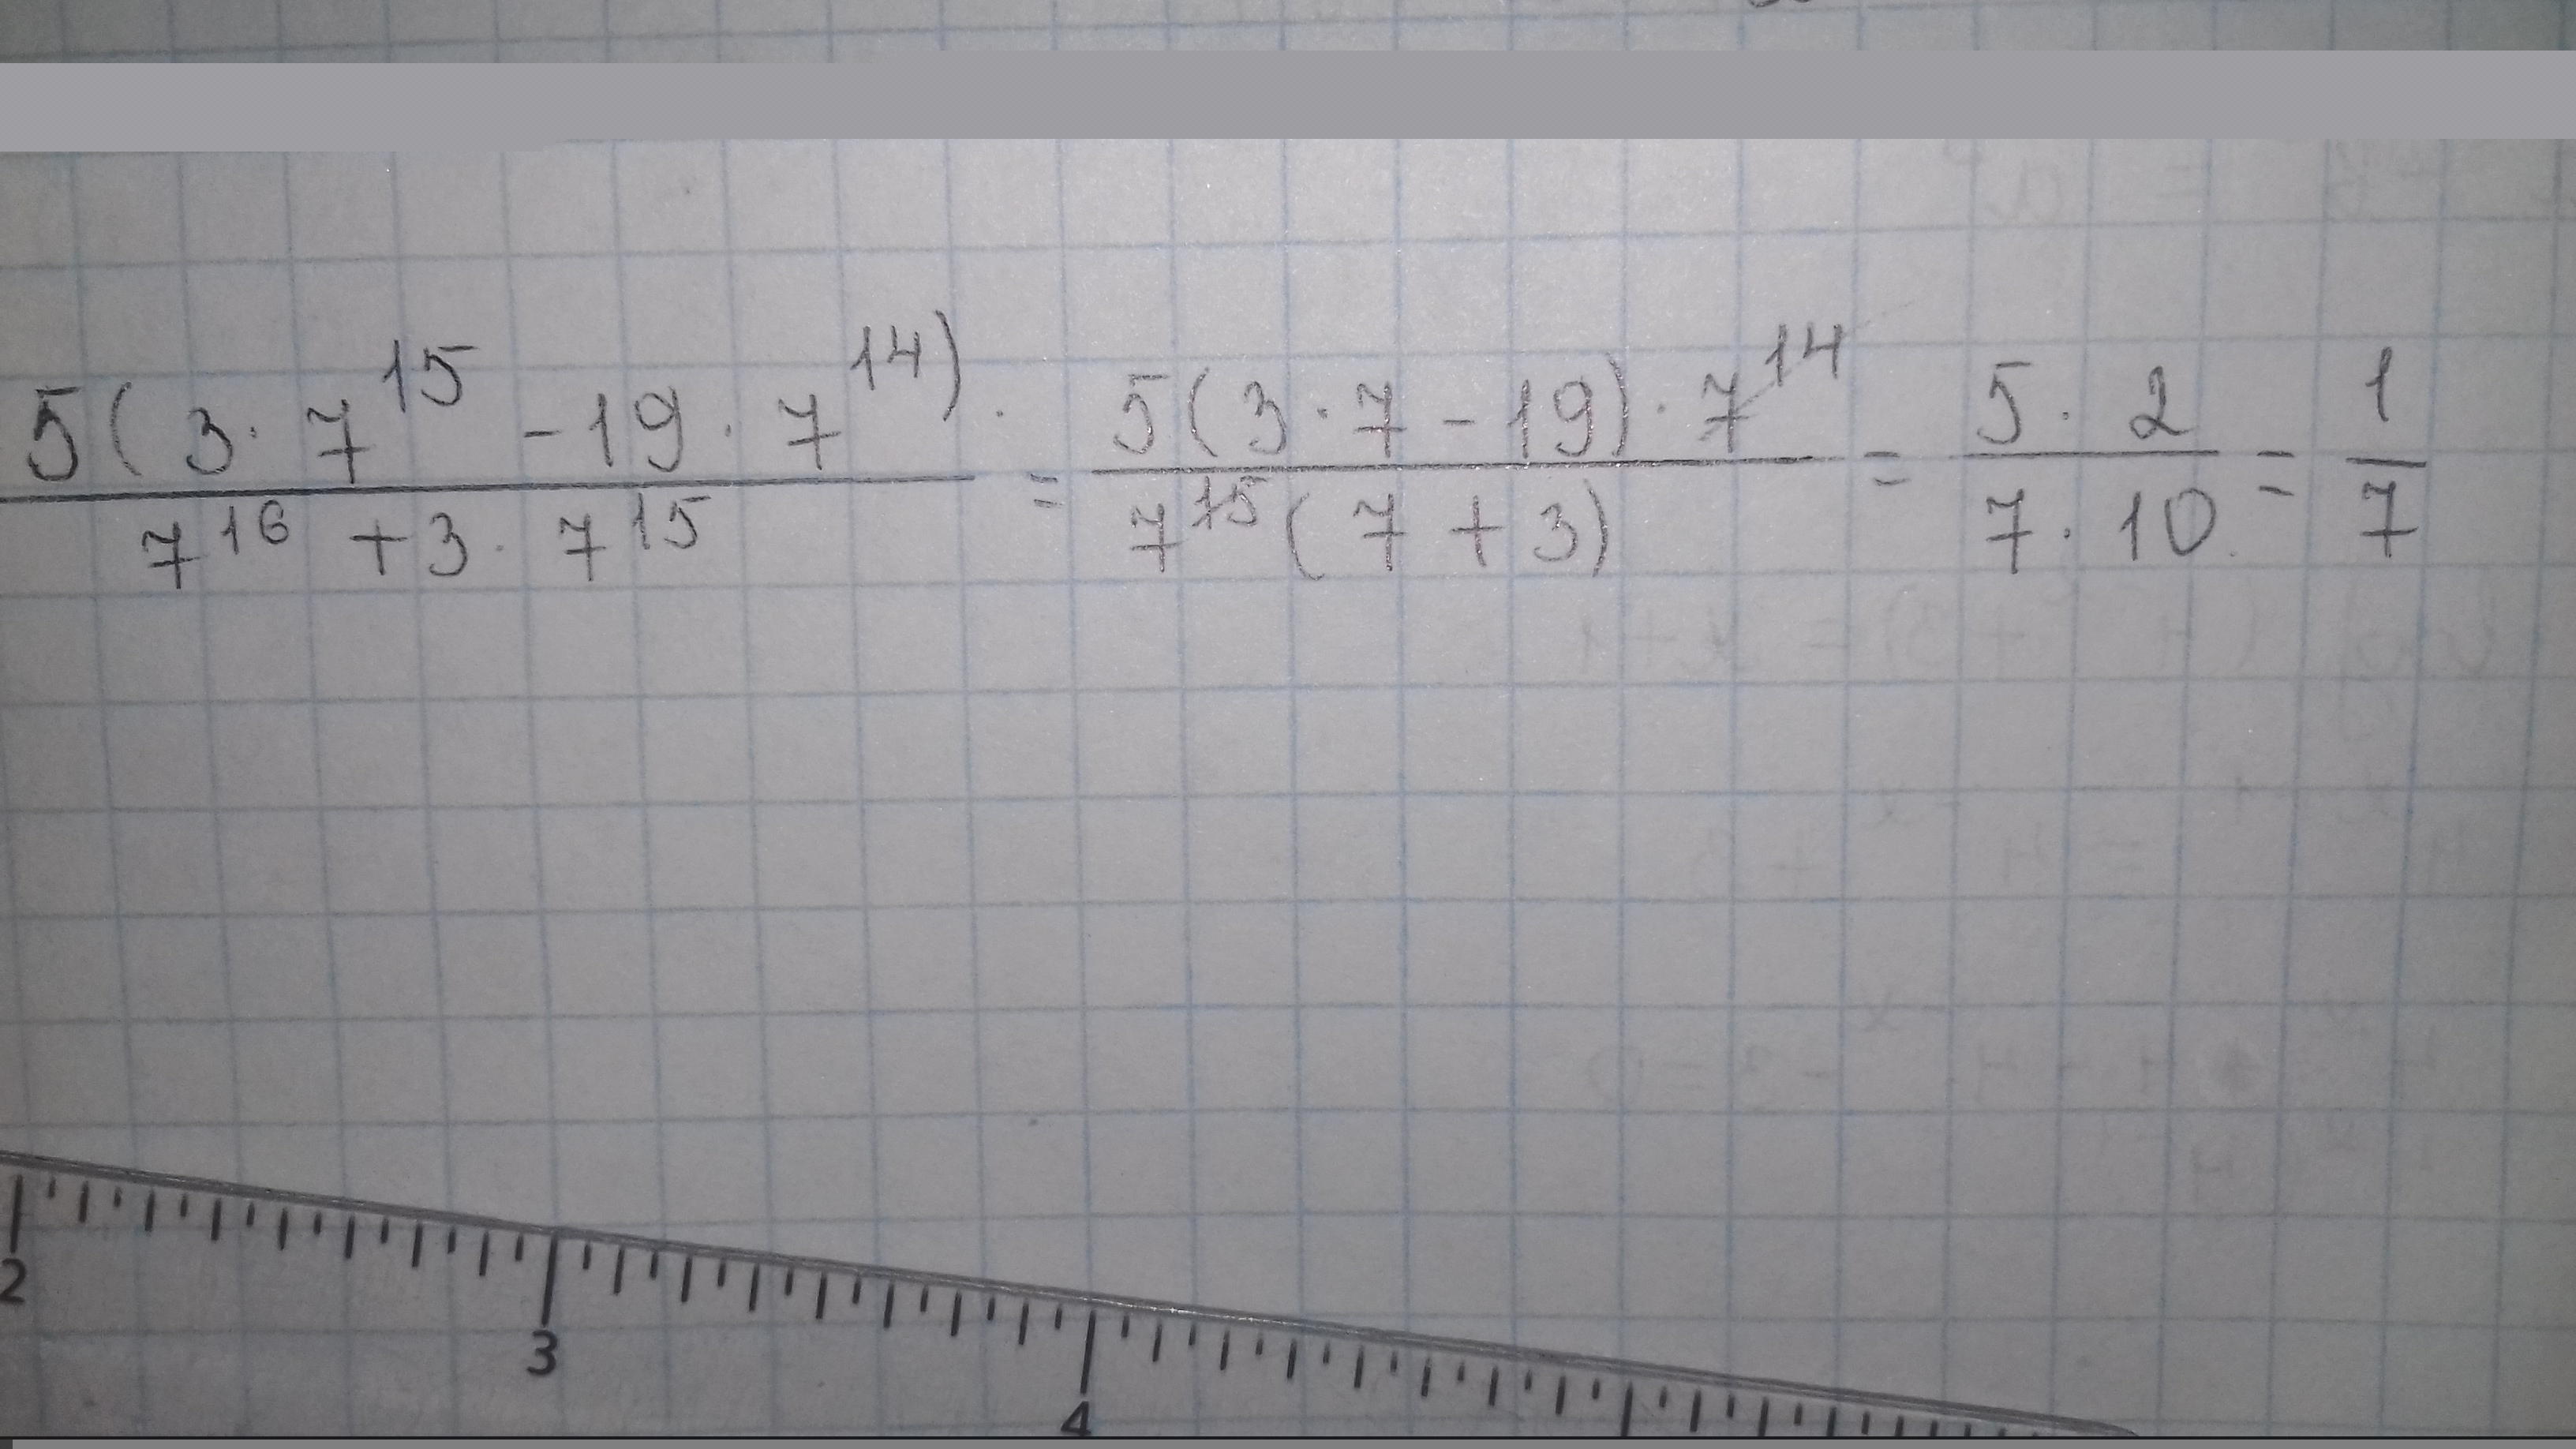 5(3·7^15 - 19·7^14) / (7^16 + 3·7^15) = 5(3·7 - 19)·7^14 / (7^15(7 + 3)) = (5·2) / (7·10) = 1/7
2 3 4